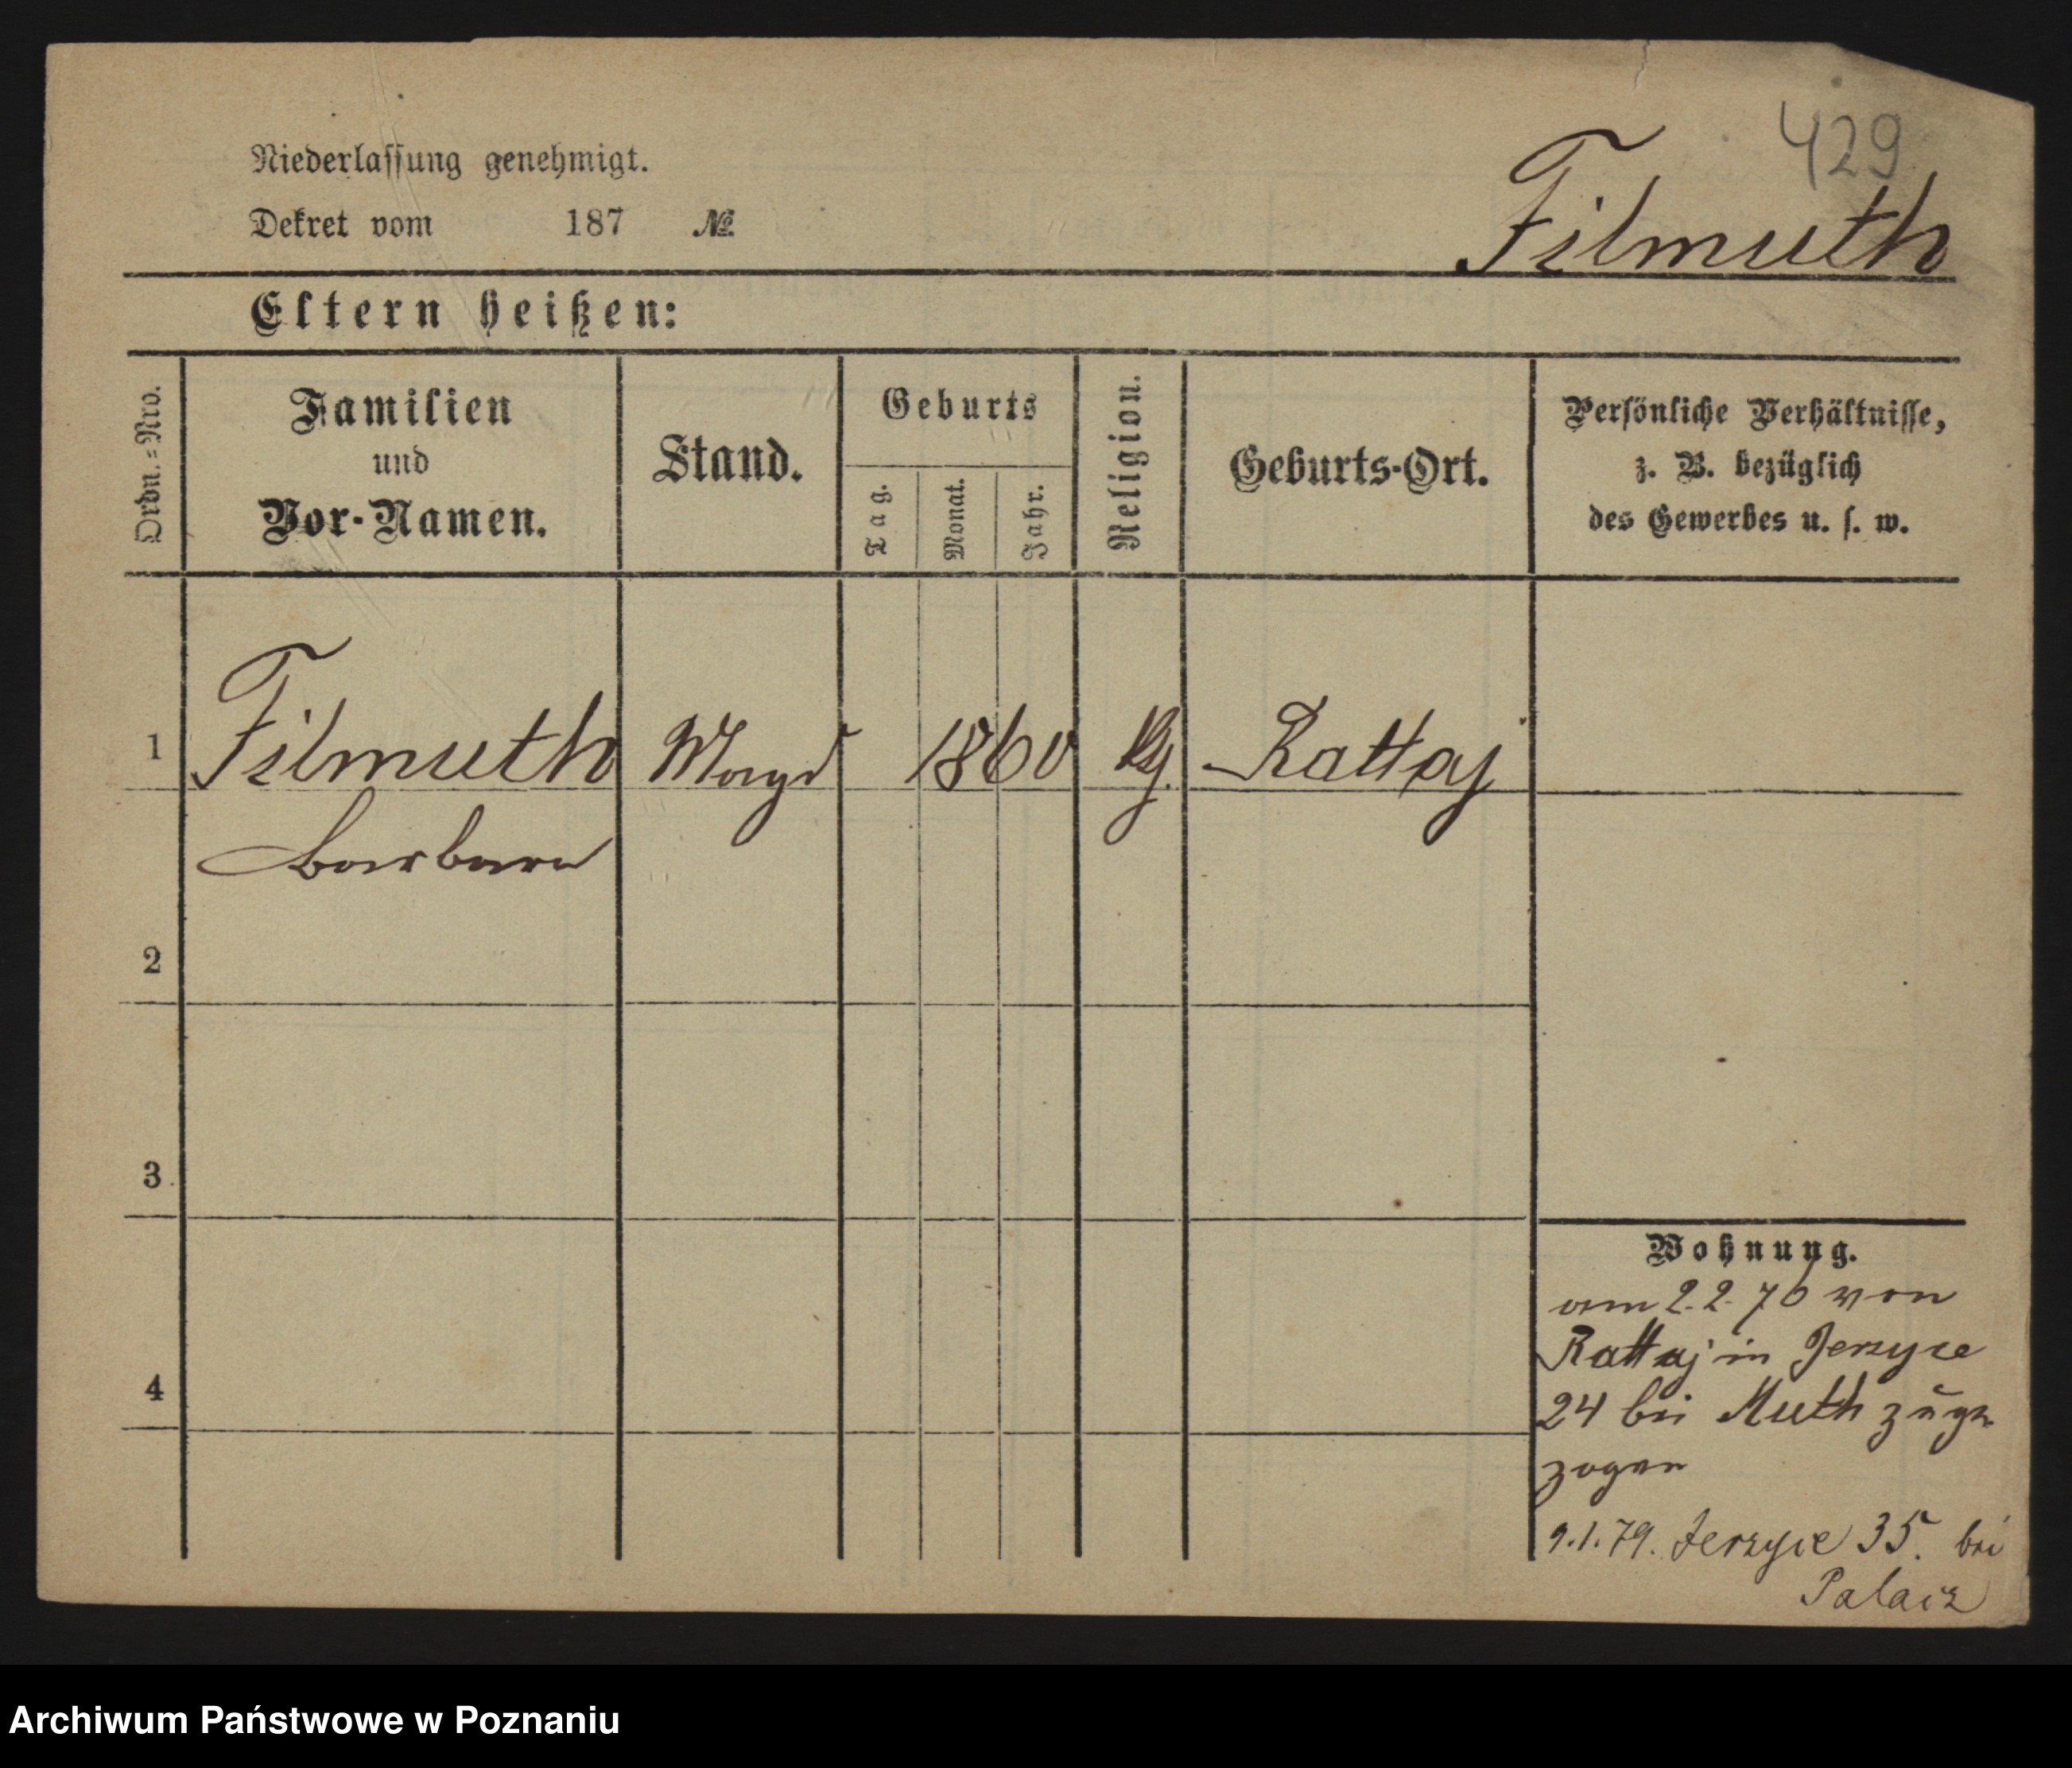 429
Niederlassung genehmigt.
Dekret vom 187 №
Filmuth
Eltern heißen:
Ordn.=Nro.
Familien
und
Vor-Namen.
Stand.
Geburts
Tag.
Monat.
Jahr.
Religion.
Geburts-Ort.
Persönliche Verhältnisse,
z. B. bezüglich
des Gewerbes u. s. w.
1 Filmuth Magd 1860 Rattaj
Barbara
2
3
4
Wohnung.
am 2.2.76 von
Rattaj in Jerzyce
24 bei Muth zuge
zogen
9.1.79. Jerzyce 35. bei
Palacz
Archiwum Państwowe w Poznaniu